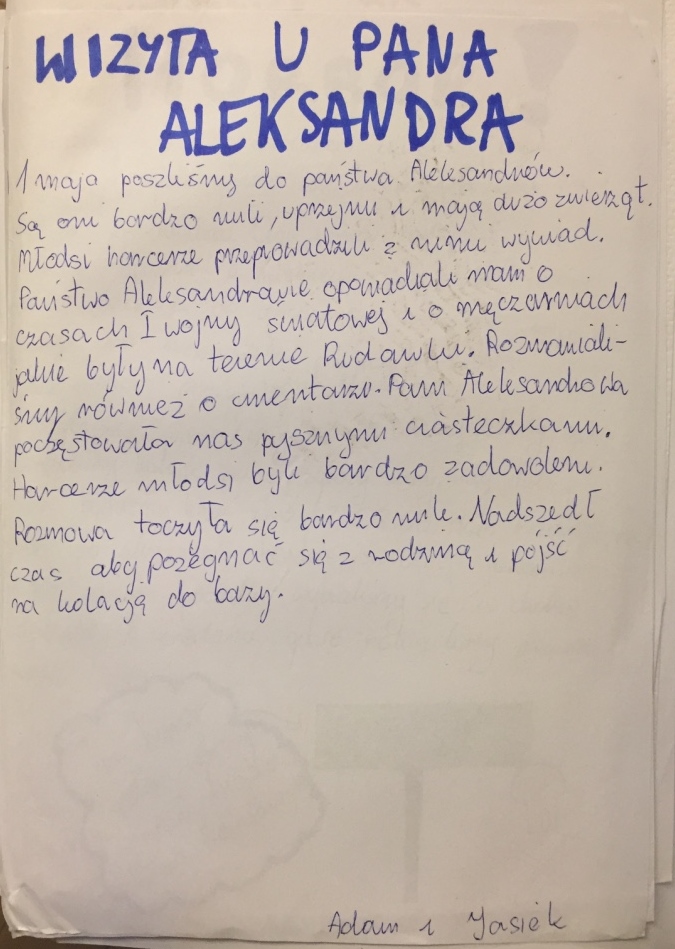 WIZYTA U PANA
ALEKSANDRA
1 maja poszliśmy do państwa Aleksandrów.
Są oni bardzo mili, uprzejmi i mają dużo zwierząt.
Młodsi harcerze przeprowadzili z nimi wywiad.
Państwo Aleksandrowie opowiadali nam o
czasach I wojny światowej i o męczarniach
jakie były na terenie Rudawki. Rozmawiali-
śmy również o cmentarzu. Pani Aleksandrowa
poczęstowała nas pysznymi ciasteczkami.
Harcerze młodsi byli bardzo zadowoleni.
Rozmowa toczyła się bardzo mile. Nadszedł
czas aby pożegnać się z rodziną i pójść
na kolację do bazy.
Adam i Jasiek